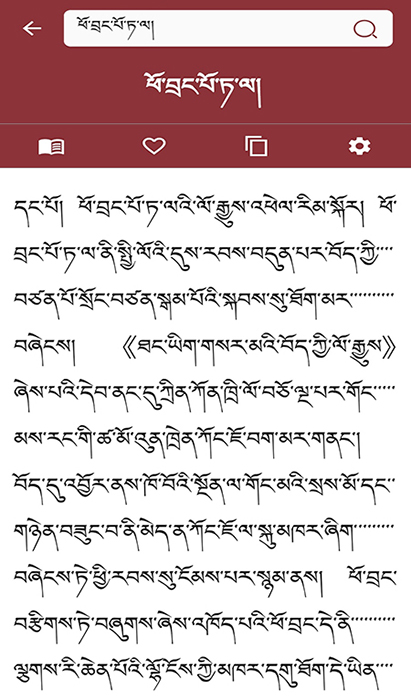 ཕོ་བྲང་པོ་ཏ་ལ།
ཕོ་བྲང་པོ་ཏ་ལ།
དང་པོ། ཕོ་བྲང་པོ་ཏ་ལའི་ལོ་རྒྱུས་འཕེལ་རིམ་སྐོར། ཕོ་
བྲང་པོ་ཏ་ལ་ནི་སྤྱི་ལོའི་དུས་རབས་བདུན་པར་བོད་ཀྱི་་་་
བཙན་པོ་སྲོང་བཙན་སྒམ་པོའི་སྐབས་སུ་ཐོག་མར་་་་་་་་་་
བཞེངས། 《ཐང་ཡིག་གསར་མའི་བོད་ཀྱི་ལོ་རྒྱུས》
ཞེས་པའི་དེབ་ནང་དུ་ཀྲིན་ཀོན་ཁྲི་ལོ་བཅོ་ལྔ་པར་གོང་་་་་
མས་རང་གི་ཚ་མོ་འུན་ཁྲེན་ཀོང་ཇོ་བག་མར་གནང་།
བོད་དུ་འབྱོར་ནས་ཁོ་བོའི་སྔོན་ལ་གོང་མའི་སྲས་མོ་དང་་
གཉེན་བཟུང་བ་ནི་མེད་ན་ཀོང་ཇོ་ལ་སྐུ་མཁར་ཞིག་་་་་་་་་
བཞེངས་ཏེ་ཕྱི་རབས་སུ་ངོམས་པར་སྙམ་ནས། ཕོ་བྲང་
བརྩིགས་ཏེ་བཞུགས་ཞེས་འཁོད་པའི་ཕོ་བྲང་དེ་ནི་་་་་་་་་
ལྕགས་རི་ཆེན་པོའི་ལྷོ་ངོས་ཀྱི་མཁར་དགུ་ཐོག་དེ་ཡིན་་་་